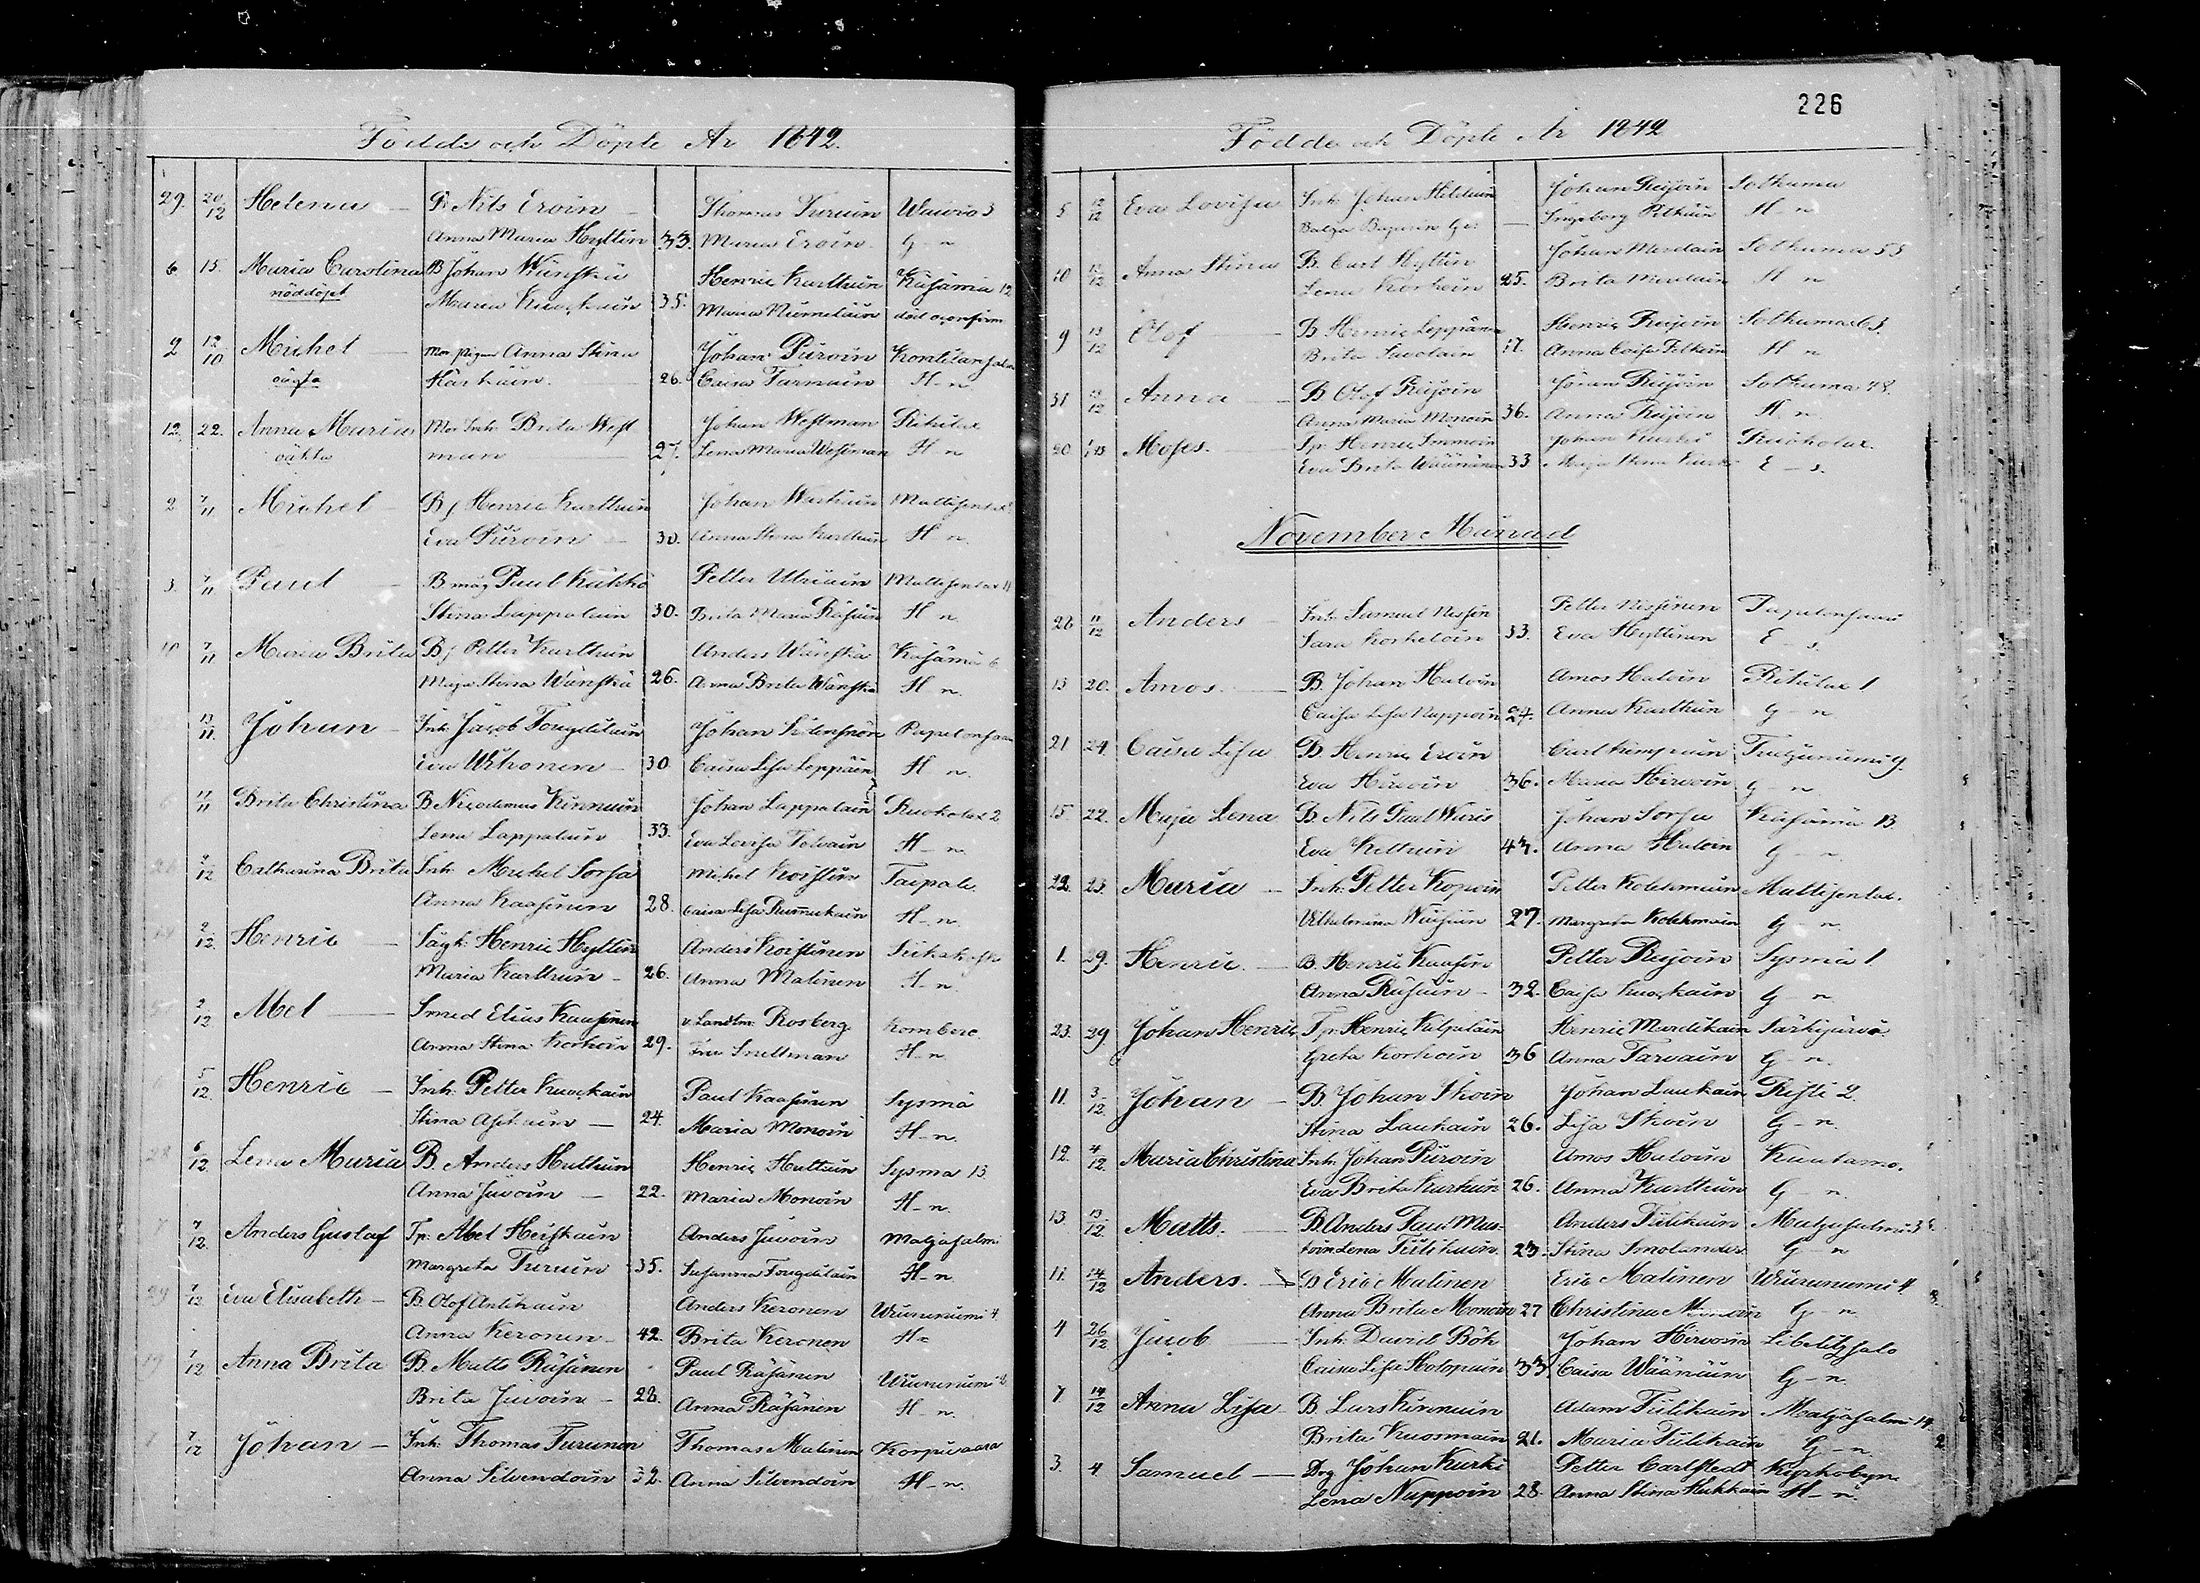 226
Födde och Döpte År 1842.
29. 20/12 Helena — B. Nils Eroin — Thomas Turuin Waivio 3
Anna Maria Hyttin 33. Maria Eroin. G-n
6 15. Maria Carolina B Johan Wänskä Henric Karttuin Käsämä 12
nöddöpt Maria Knockain 35. Maria Nūmeläin
2 12/10 Michel — Mor. Pigan Anna Stina Johan Piiroin Kontilansalmi
oägta Härkäin. 26. Caisa Tarnain H-n
12. 22. Anna Maria Mor Inh. Brita West Johan Westman Riihilax
oäkta man — 27. Lena Maria Westman H n
2 7/11 Michel — B Henric Karttuin Johan Mattisenlax
Eva Piiroin — 30. Anna Stina Karttuin H n.
3. 7/11 Paul — B måg Paul Kukko Petter Utriain Mattisenlax 11
Stina Lappalain 30. Brita Maria Räsäin H n.
10 7/11 Maria Brita B Petter Karttuin Anders Wänskä Käsämä 6
Maja Stina Wänskä 26. Anna Brita Wänskä H n.
13/11. Johan — Inh. Jacob Fougdilain Johan Papelonsaari
Eva Ikonen — 30 Caisa Lisa Leppäin H n.
6 13/11 Brita Christina B Nicodemus Kinnuin Johan Lappalain Ruokolax 2
Lena Lappalain 33. Eva Lovisa Tolvain H-n.
26 2/12 Catharina Brita Inh. Michel Sorsa Michel Koistin Taipale.
Anna Kaasinen 28. Caisa Lisa Rummukain H-n.
2/12. Henric — Henric Hyttin Anders Koistinen
Maria Karttuin — 26. Anna Malinen H. n.
2/12 Abel — Smed Elias Kaasinen v. Landtm. Rosberg Komberc.
Anna Stina Korhoin 29. Fru Snellman H-n.
5/12. Henric — Inh. Petter Knockain Paul Kaasinen Sysmä
Stina — 24. Maria Monoin H-n.
28 6/12 Lena Maria B. Anders Hultuin Henric Hultuin Sysma 13.
Anna Juvoin — 22. Maria Monoin H-n.
7 7/12. Anders Gustaf Tp. Abel Heiskain Anders Juvoin Maljasalmi
Margreta Turuin 35. Susanna Fougdilain H-n.
29 7/12 Eva Elisabeth — B. Olof Antikain Anders Keronen Wiurunniemi 4
Anna Keronen — 42. Brita Keronen H-
19 7/12 Anna Brita B. Matts Räsänen Paul Räsänen Wiurunniemi
Brita Juvoin — 28. Anna Räsänen H-n.
7/12 Johan — Inh. Thomas Turunen Thomas Malinen Korpivaara
Anna Silvendoin 32. Anna Silvendoin H-n.
Födde och Döpte År 1842
5 12/12 Eva Lovisa Inh. Johan Johan Reijoin Sotkuma
— Ingeborg Pitkäin H-n
10 12/12 Anna Stina B. Carl Hyttin Johan Sotkuma 55
Lena Korhoin 25. Brita H n
9 13/12 Olof — B Henric Leppänen Henric Reijoin Sotkuma 63
Brita Savolain Anna Caisa Pitkäin H n
31 Anna — B Olof Reijoin Johan Reijoin Sotkuma 48.
Anna Maria Monoin 36. Anna Reijoin H n.
20 Moses. — Tp. Henric Immoin Johan Kurki Ruokolax.
Eva Brita Wäänänen 33 Maja Stina Kurki E-s.
November Månad
28 11/12 Anders — Inh. Samuel Nissin Petter Nissinen Papelonsaari
Sara Korkeloin 33. Eva Hyttinen E-s.
13 20. Amos. — B. Johan Haloin Amos Haloin Riihilax 1
Caisa Lisa Nuppoin 24. Anna Karttuin G-n
21 24. Caisa Lisa B. Henric Eroin Carl Kempuin Tutjuniemi 9.
Eva Hirvoin 36. Maria Hirvoin G-n.
15. 22. Maja Lena B Nils Paul Waris Johan Sorsa Käsämä 13.
Eva Keltuin 43. Anna Haloin G-n.
22. 23. Maria — Inh. Petter Kopoin Petter Kolehmain Mattisenlax.
Wilhelmina Wäisäin 27. Margreta Kolehmain G-n.
1. 29. Henric. — B. Henric Kaasin Petter Reijoin Sysmä 1
Anna Räsäin — 32. Caisa Knockain G-n
23. 29 Johan Henric Tp. Henric Kilpiläin Henric Mardikain Särkijärvi
Greta Korhoin 36 Anna Tarvain G-n.
11. 3/12. Johan — B. Johan Ikoin Johan Laukain Risti 2.
Stina Laukain 26. Lisa Ikoin G-n.
12. 4/12. Maria Christina Inh. Johan Piiroin Amos Haloin Kuutamo.
Eva Brita Kurkuin 26. Anna Karttuin G-n.
13. 13/12. Matts. — B Anders Paul Mus- Anders Tiilikain Maljasalmi 3
toin Lena Tiilikain. 23. Stina Smolander G-n
11. 14/12 Anders. — B Eric Malinen Eric Malinen Wiurunniemi 4
Anna Brita Monoin 27 Christina Monoin G-n
4 26/12 Jacob — Inh. David Böh Johan Hirvoin Libelitzsalo
Caisa Lisa Holopain 33. Caisa Wäänäin G-n.
7 14/12 Anna Lisa B Lars Kinnuin Adam Tiilikain Maljasalmi 14.
Brita Kuosmain 21. Maria Tiilikain G-n
3. 4 Samuel — Drg Johan Kurki Petter Carlstedt Kyrkobyn
Lena Nuppoin 28. Anna Stina Kukkain H-n.